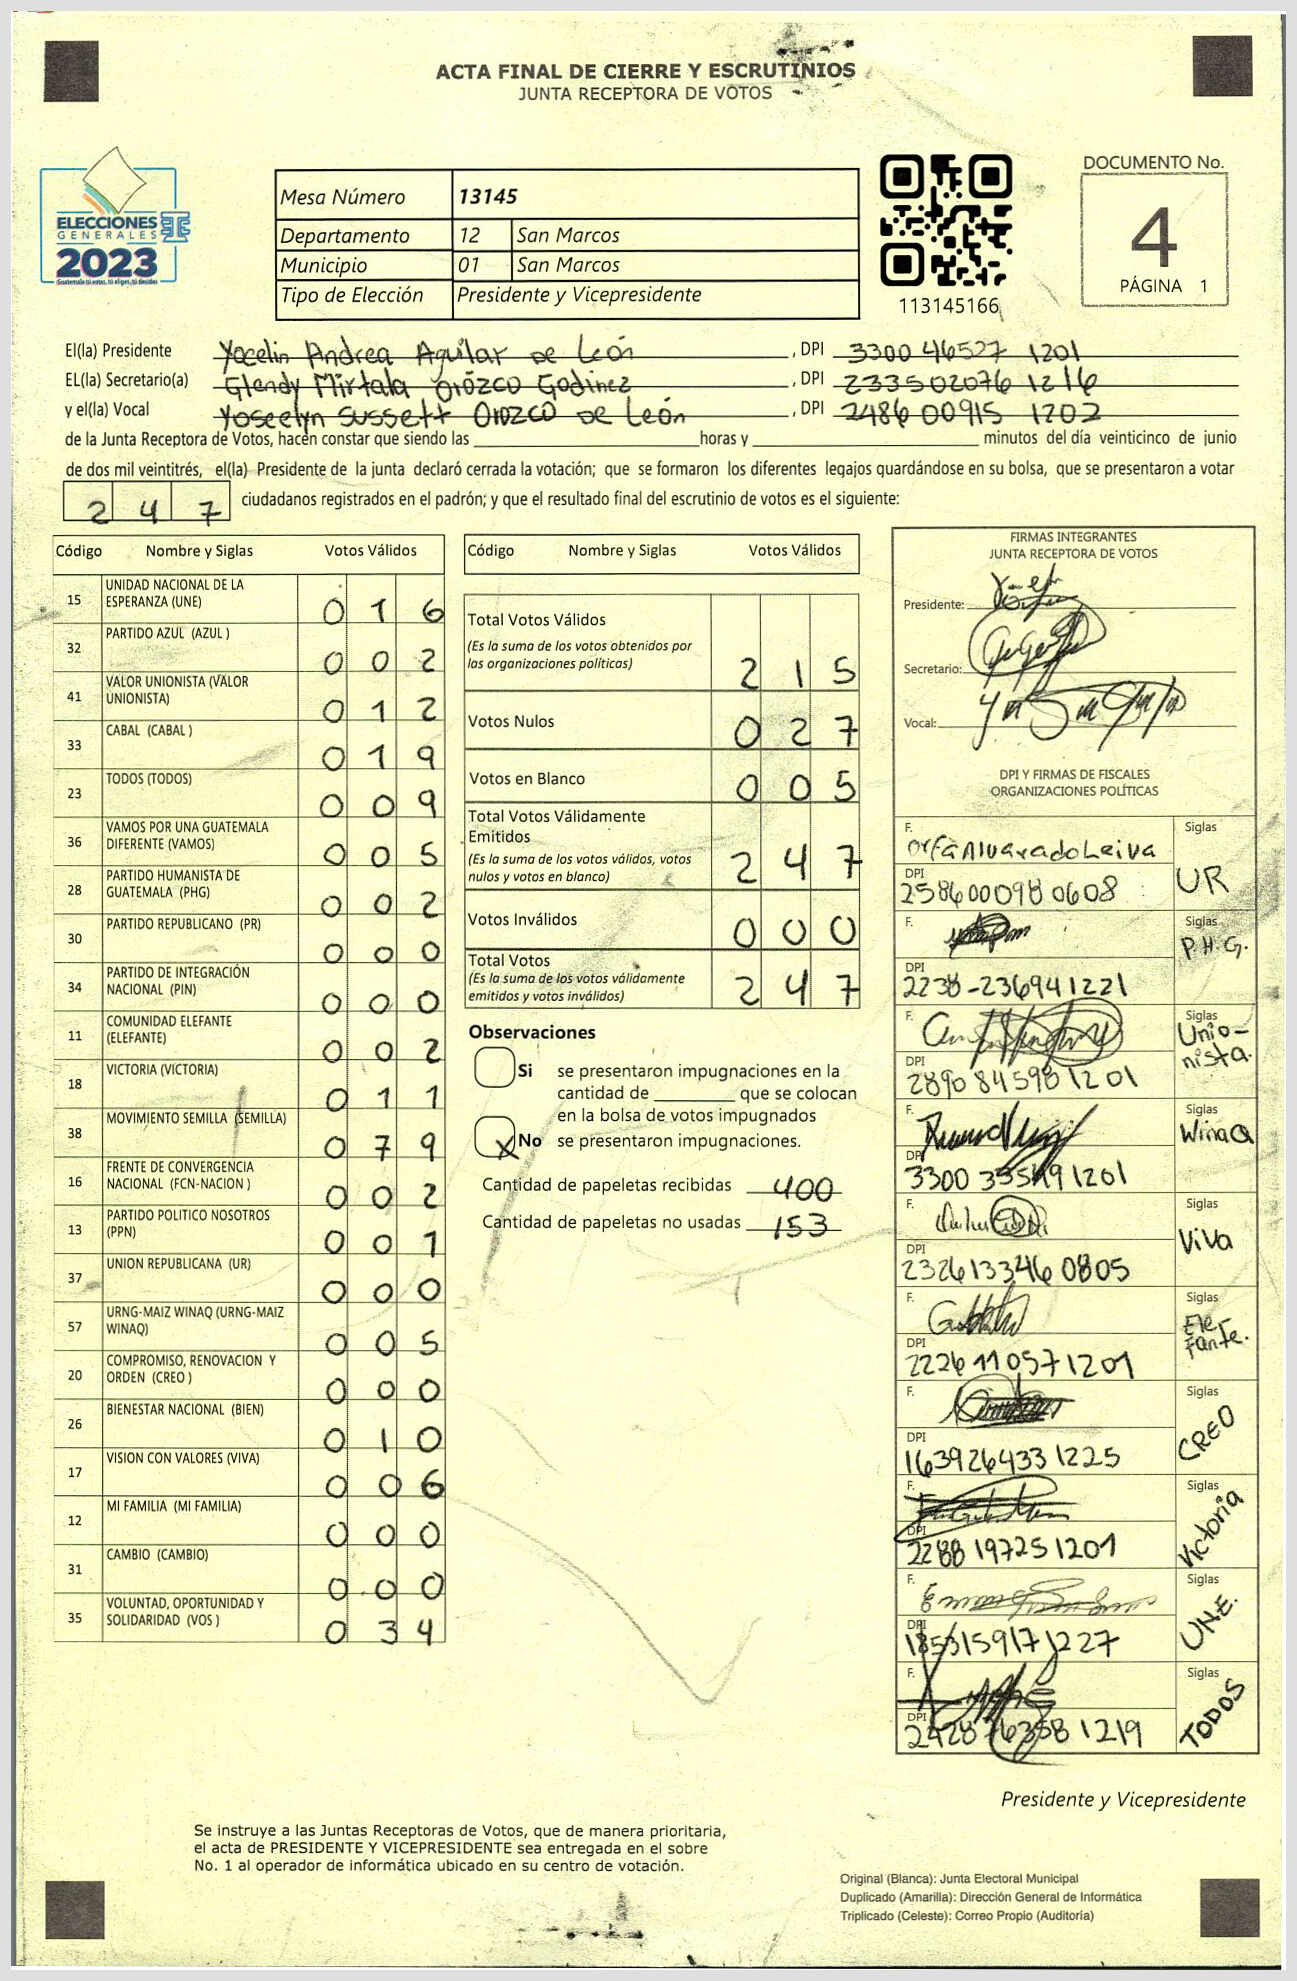 ACTA FINAL DE CIERRE Y ESCRUTINIOS
JUNTA RECEPTORA DE VOTOS
ELECCIONES
GENERALES
2023
Mesa Número 13145
Departamento 12 San Marcos
Municipio 01 San Marcos
Tipo de Elección Presidente y Vicepresidente
113145166
DOCUMENTO No.
4
PÁGINA 1
El(la) Presidente Yocelin Andrea Aguilar De León , DPI 3300 46527 1201
EL(la) Secretario(a) Glendy Mirtala Orózco Godinez , DPI 233502076 1216
y el(la) Vocal Yoseelyn Sussett Orozco De León , DPI 2486 00915 1202
de la Junta Receptora de Votos, hacen constar que siendo las horas y minutos del día veinticinco de junio
de dos mil veintitrés, el(la) Presidente de la junta declaró cerrada la votación; que se formaron los diferentes legajos guardándose en su bolsa, que se presentaron a votar
2 4 7 ciudadanos registrados en el padrón; y que el resultado final del escrutinio de votos es el siguiente:
Código Nombre y Siglas Votos Válidos
15 UNIDAD NACIONAL DE LA ESPERANZA (UNE) 0 1 6
32 PARTIDO AZUL (AZUL ) 0 0 2
41 VALOR UNIONISTA (VALOR UNIONISTA) 0 1 2
33 CABAL (CABAL ) 0 1 9
23 TODOS (TODOS) 0 0 9
36 VAMOS POR UNA GUATEMALA DIFERENTE (VAMOS) 0 0 5
28 PARTIDO HUMANISTA DE GUATEMALA (PHG) 0 0 2
30 PARTIDO REPUBLICANO (PR) 0 0 0
34 PARTIDO DE INTEGRACIÓN NACIONAL (PIN) 0 0 0
11 COMUNIDAD ELEFANTE (ELEFANTE) 0 0 2
18 VICTORIA (VICTORIA) 0 1 1
38 MOVIMIENTO SEMILLA (SEMILLA) 0 7 9
16 FRENTE DE CONVERGENCIA NACIONAL (FCN-NACION ) 0 0 2
13 PARTIDO POLITICO NOSOTROS (PPN) 0 0 1
37 UNION REPUBLICANA (UR) 0 0 0
57 URNG-MAIZ WINAQ (URNG-MAIZ WINAQ) 0 0 5
20 COMPROMISO, RENOVACION Y ORDEN (CREO ) 0 0 0
26 BIENESTAR NACIONAL (BIEN) 0 1 0
17 VISION CON VALORES (VIVA) 0 0 6
12 MI FAMILIA (MI FAMILIA) 0 0 0
31 CAMBIO (CAMBIO) 0 0 0
35 VOLUNTAD, OPORTUNIDAD Y SOLIDARIDAD (VOS ) 0 3 4
Código Nombre y Siglas Votos Válidos
Total Votos Válidos 2 1 5
(Es la suma de los votos obtenidos por
las organizaciones políticas)
Votos Nulos 0 2 7
Votos en Blanco 0 0 5
Total Votos Válidamente
Emitidos 2 4 7
(Es la suma de los votos válidos, votos
nulos y votos en blanco)
Votos Inválidos 0 0 0
Total Votos 2 4 7
(Es la suma de los votos válidamente
emitidos y votos inválidos)
Observaciones
Si se presentaron impugnaciones en la
cantidad de que se colocan
en la bolsa de votos impugnados
X No se presentaron impugnaciones.
Cantidad de papeletas recibidas 400
Cantidad de papeletas no usadas 153
FIRMAS INTEGRANTES
JUNTA RECEPTORA DE VOTOS
Presidente:
Secretario:
Vocal:
DPI Y FIRMAS DE FISCALES
ORGANIZACIONES POLÍTICAS
F. Orfa Alvarado Leiva Siglas
DPI 2586000980608 UR
F. Siglas P.H.G.
DPI 2238-236941221
F. Siglas Unio-
nista.
DPI 2890 84598 1201
F. Siglas WinaQ
DPI 3300 1201
F. Siglas ViVa
DPI 2326133460805
F. Siglas Ele
fante.
DPI 2226110571201
F. Siglas CREO
DPI 1639264331225
F. Siglas Victoria
DPI 2288 197251201
F. Siglas U.N.E.
DPI 1227
F. Siglas TODOS
DPI 1219
Presidente y Vicepresidente
Se instruye a las Juntas Receptoras de Votos, que de manera prioritaria,
el acta de PRESIDENTE Y VICEPRESIDENTE sea entregada en el sobre
No. 1 al operador de informática ubicado en su centro de votación.
Original (Blanca): Junta Electoral Municipal
Duplicado (Amarilla): Dirección General de Informática
Triplicado (Celeste): Correo Propio (Auditoría)